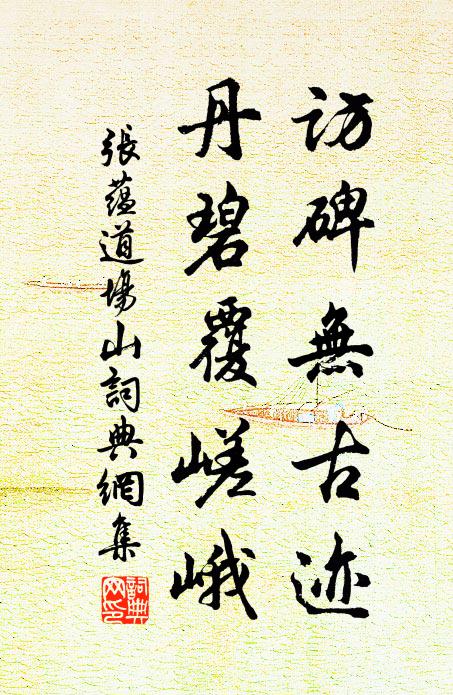 訪碑無古迹
丹碧覆嵯峨
張蘊道場山詞典網集
詞典